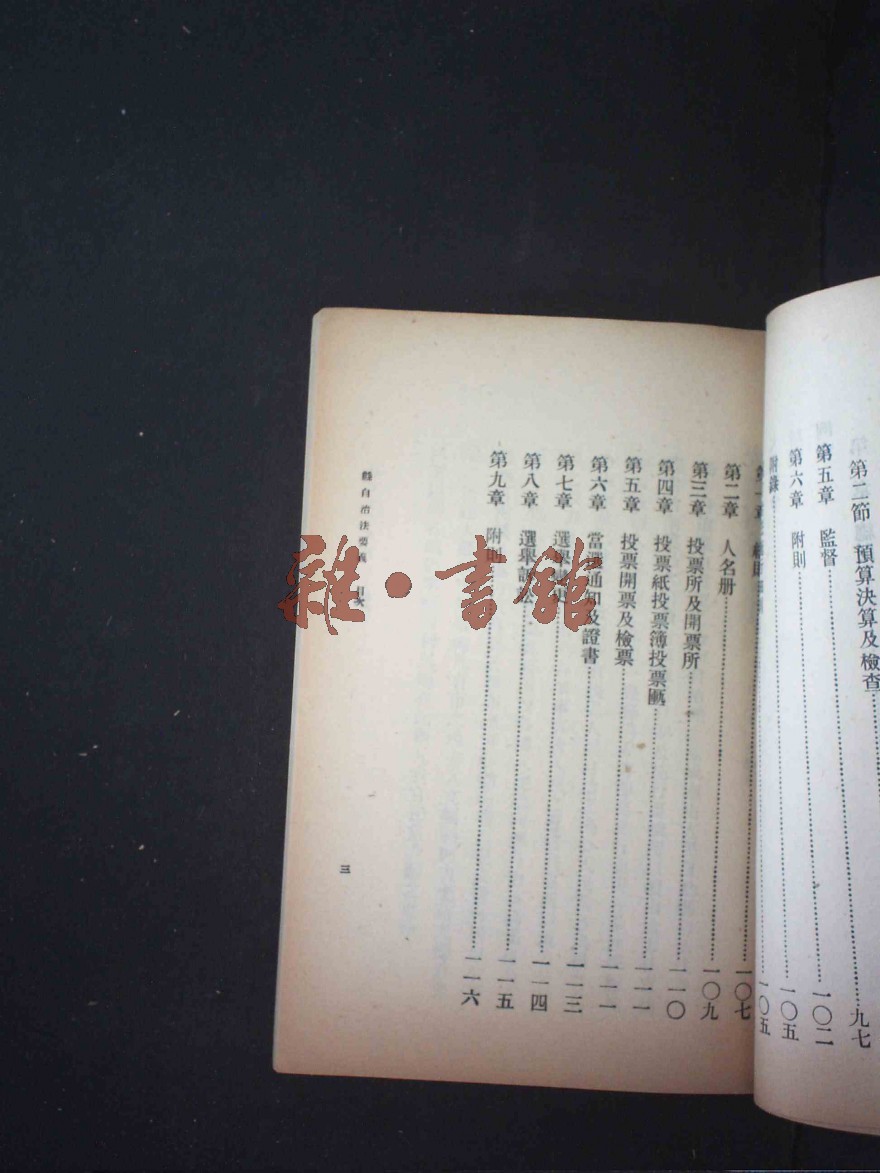 第二節 預算決算及檢查……九七
第五章 監督……一〇二
第六章 附則……一〇五
附錄……一〇五
第一章……一〇七
第二章 人名册……一〇九
第三章 投票所及開票所……一一〇
第四章 投票紙投票簿投票匭……一一一
第五章 投票開票及檢票……一一一
第六章 當選通知及證書……一一三
第七章 選舉……一一四
第八章 選舉訴訟……一一五
第九章 附則……一一六
縣自治法要義 目次
三
雜·書館